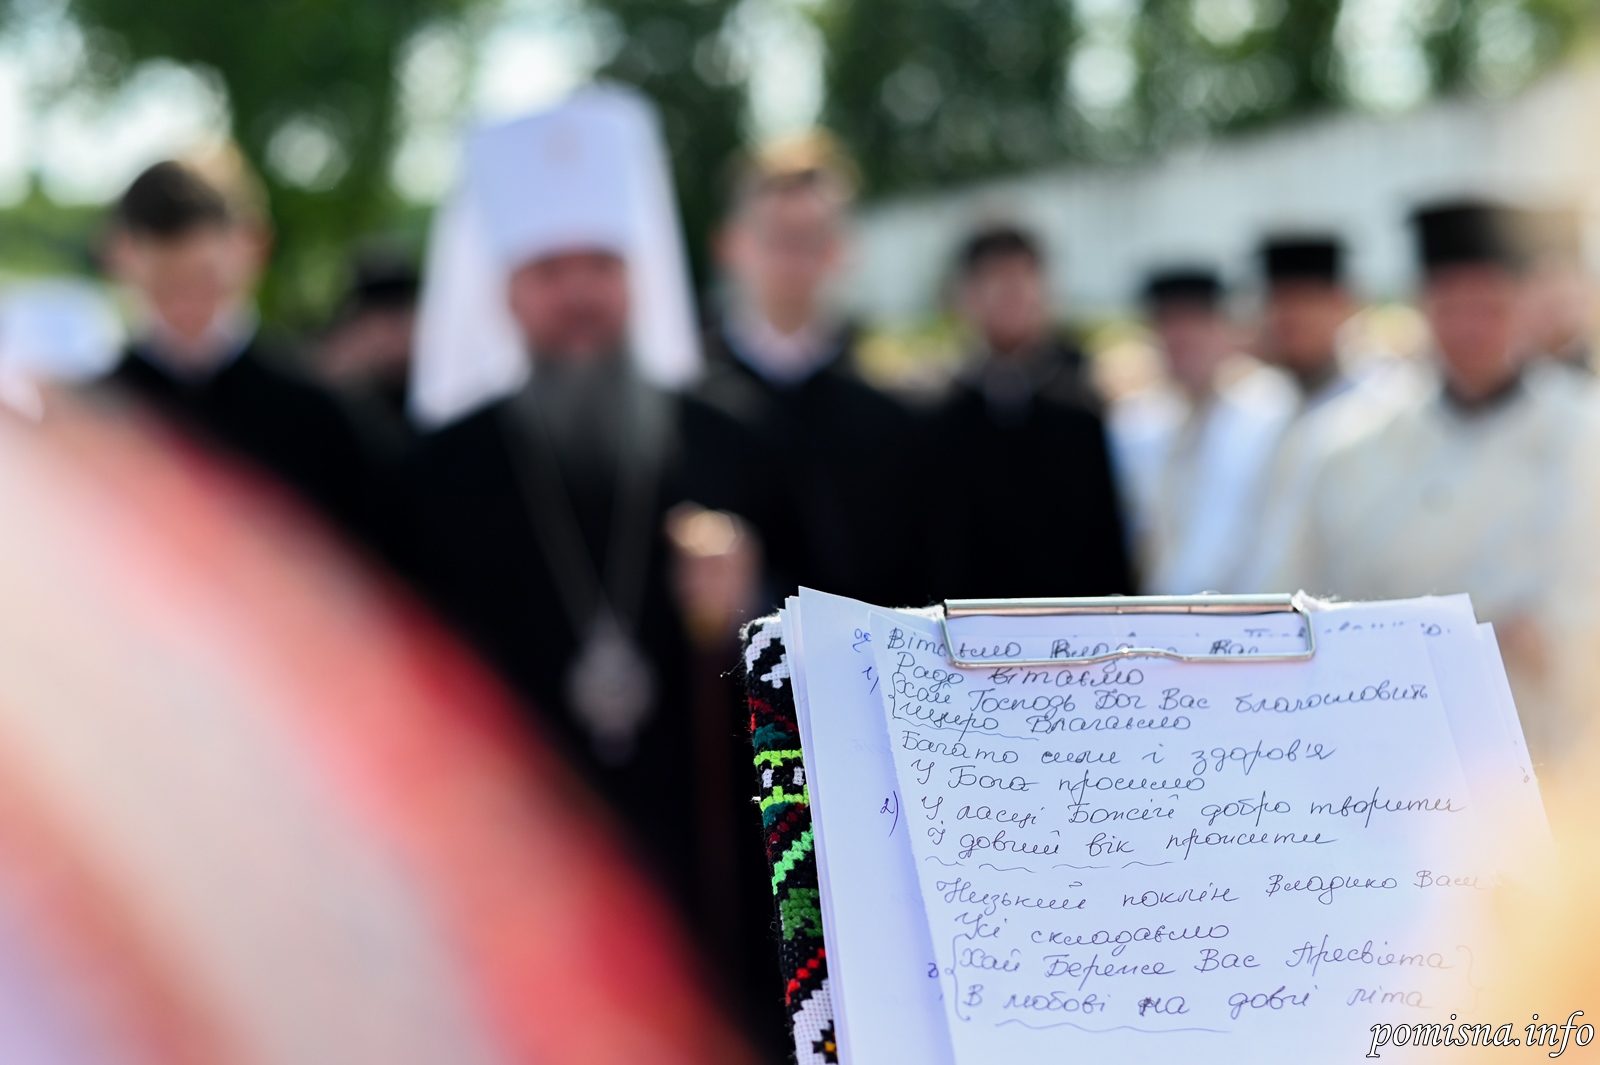 Вітаємо Владико Вас
1) Радо вітаємо
Хай Господь Бог Вас благословить
щиро благаємо
Багато сили і здоров'я
У Бога просимо
2) У ласці Божій добро творити
Й довгий вік прожити
Низький поклін Владико Вам
Усі складаємо
Хай Береже Вас Пресвята
В любові на довгі літа
pomisna.info